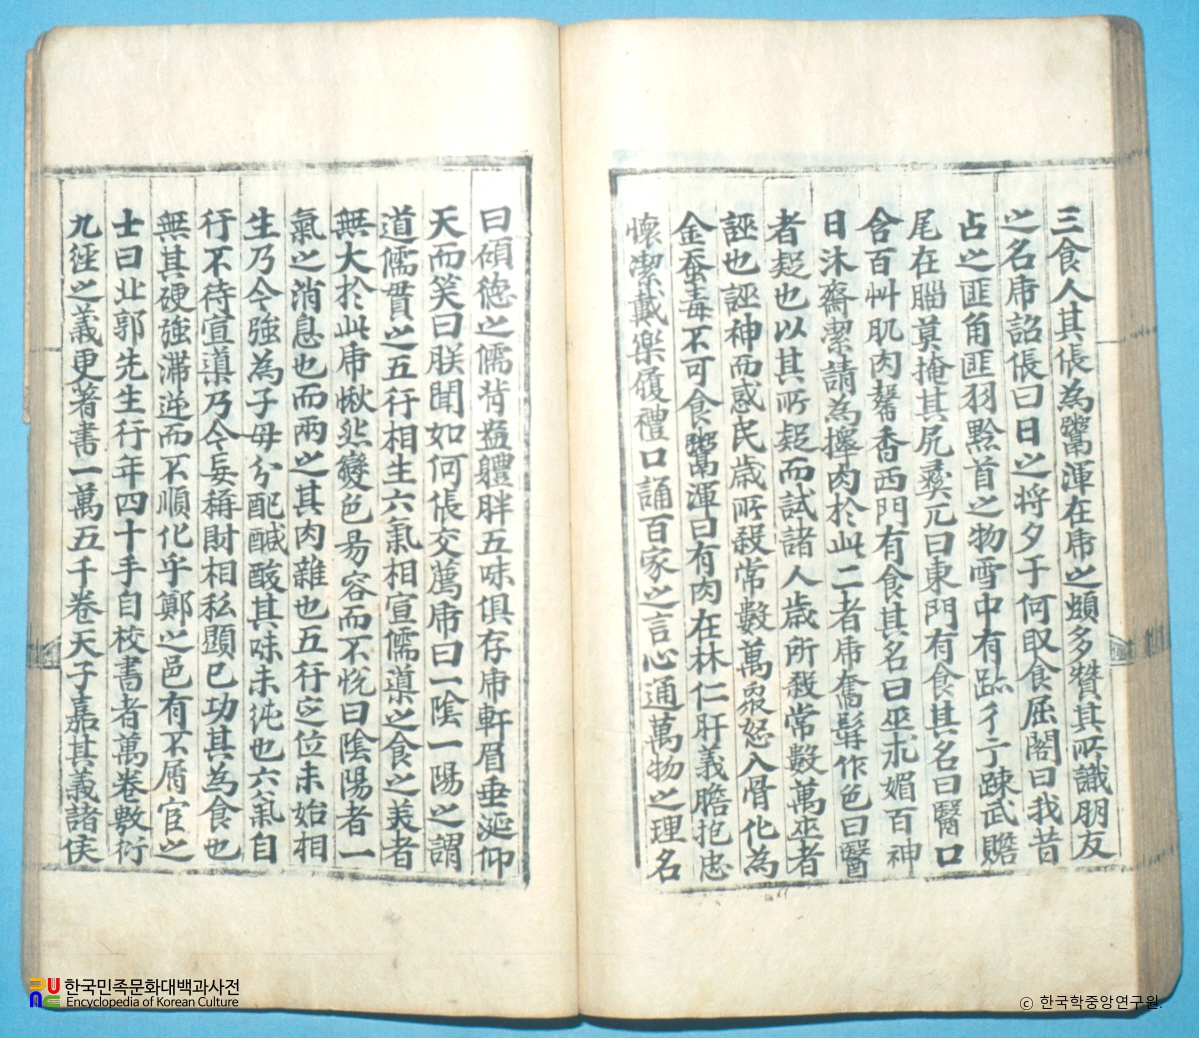 三食人其倀為鬻渾在虎之頰多贊其所識朋友
之名虎詔倀曰日之将夕于何取食屈閣曰我昔
占之匪角匪羽黔首之物雪中有跡彳亍踈武瞻
尾在腦莫掩其尻彛兀曰東門有食其名曰醫口
含百艸肌肉馨香西門有食其名曰巫求媚百神
日沐齋潔請為擇肉於此二者虎奮髥作色曰醫
者疑也以其所疑而試諸人歲所殺常數萬巫者
誣也誣神而惑民歲所殺常數萬衆怒入骨化為
金蚕毒不可食鬻渾曰有肉在林仁肝義膽抱忠
懷潔戴樂履禮口誦百家之言心通萬物之理名
曰碩徳之儒背盎軆胖五味俱存虎軒眉垂涎仰
天而笑曰朕聞如何倀交薦虎曰一陰一陽之謂
道儒貫之五行相生六氣相宣儒導之食之美者
無大於此虎愀然變色易容而不恱曰陰陽者一
氣之消息也而兩之其肉雜也五行定位未始相
生乃今強為子母分配醎酸其味未純也六氣自
行不待宣導乃今妄稱財相私顯己功其為食也
無其硬強滯逆而不順化乎鄭之邑有不屑宦之
士曰北郭先生行年四十手自校書者萬卷敷衍
九經之義更著書一萬五千卷天子嘉其義諸侯
한국민족문화대백과사전
Encyclopedia of Korean Culture
© 한국학중앙연구원.